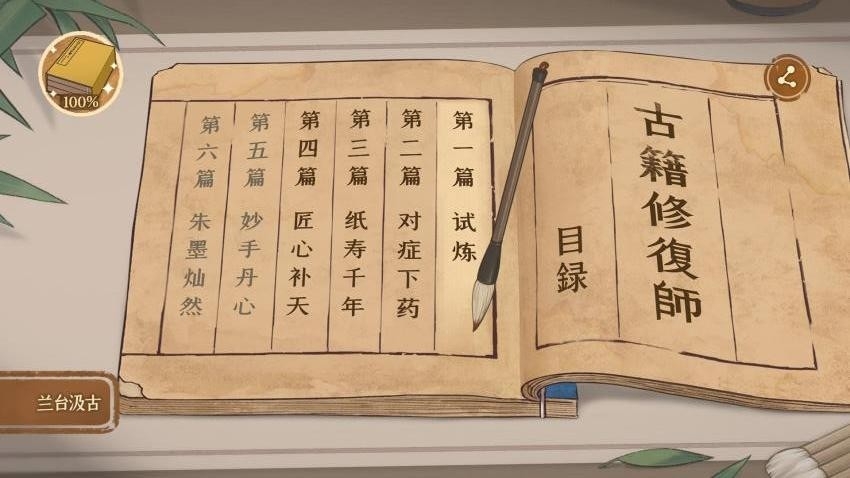 古籍修復師
目録
第一篇 试炼
第二篇 对症下药
第三篇 纸寿千年
第四篇 匠心补天
第五篇 妙手丹心
第六篇 朱墨灿然
100%
兰台汲古